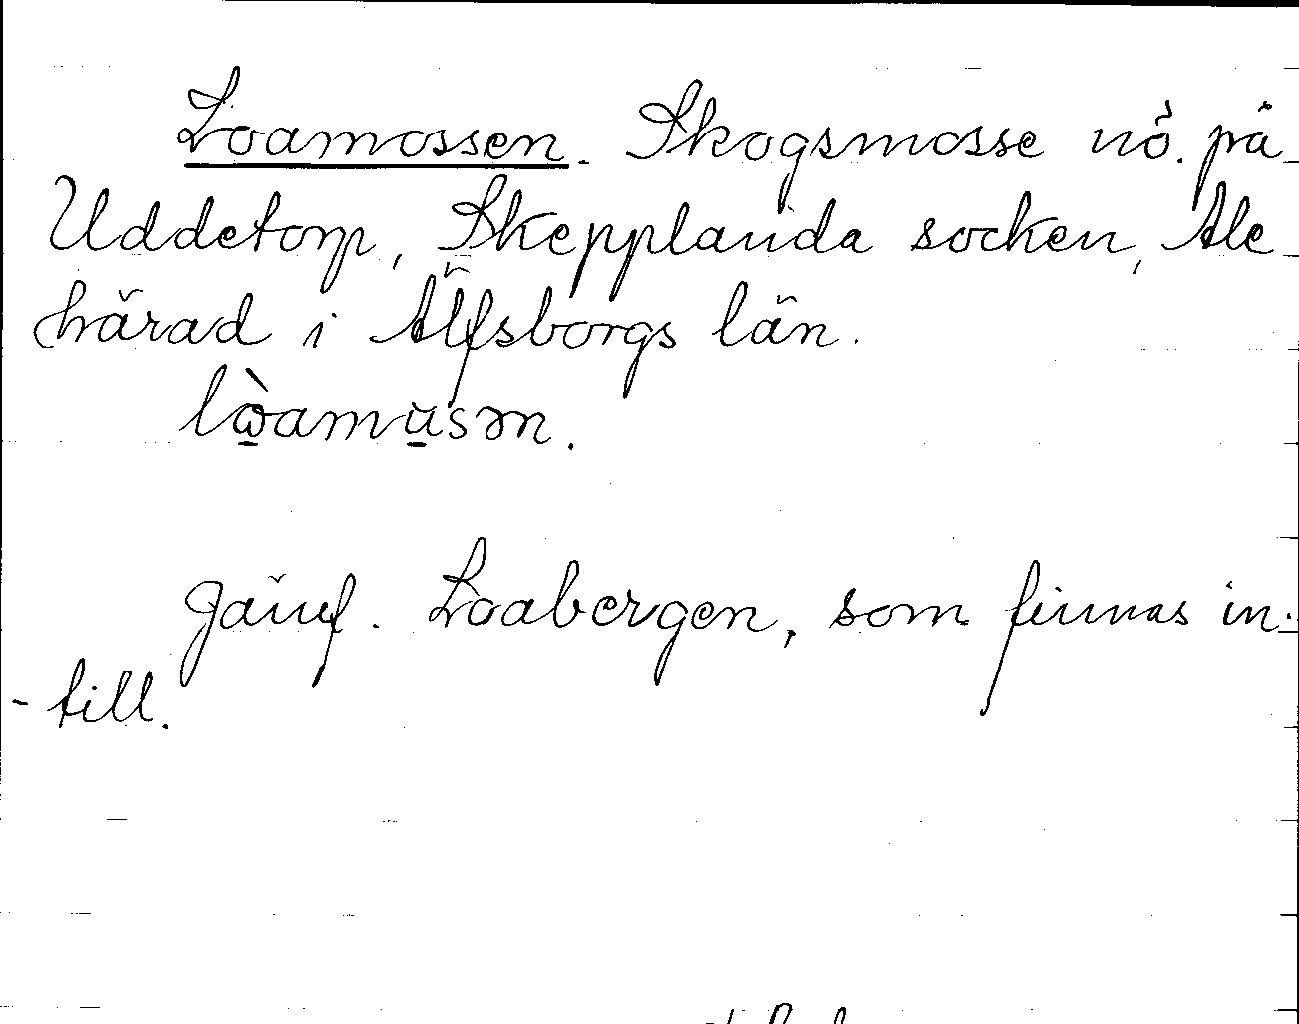 Loamossen. Skogsmosse nö. på
Uddetorp, Skepplanda socken, Ale
härad i Älfsborgs län.
lòamu̱sən.
Jämf. Loabergen, som finnas in-
-till.